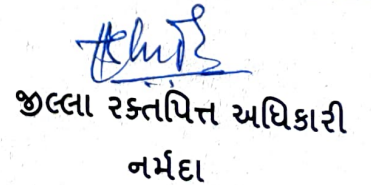 જીલ્લા રક્તપિત્ત અધિકારી
નર્મદા